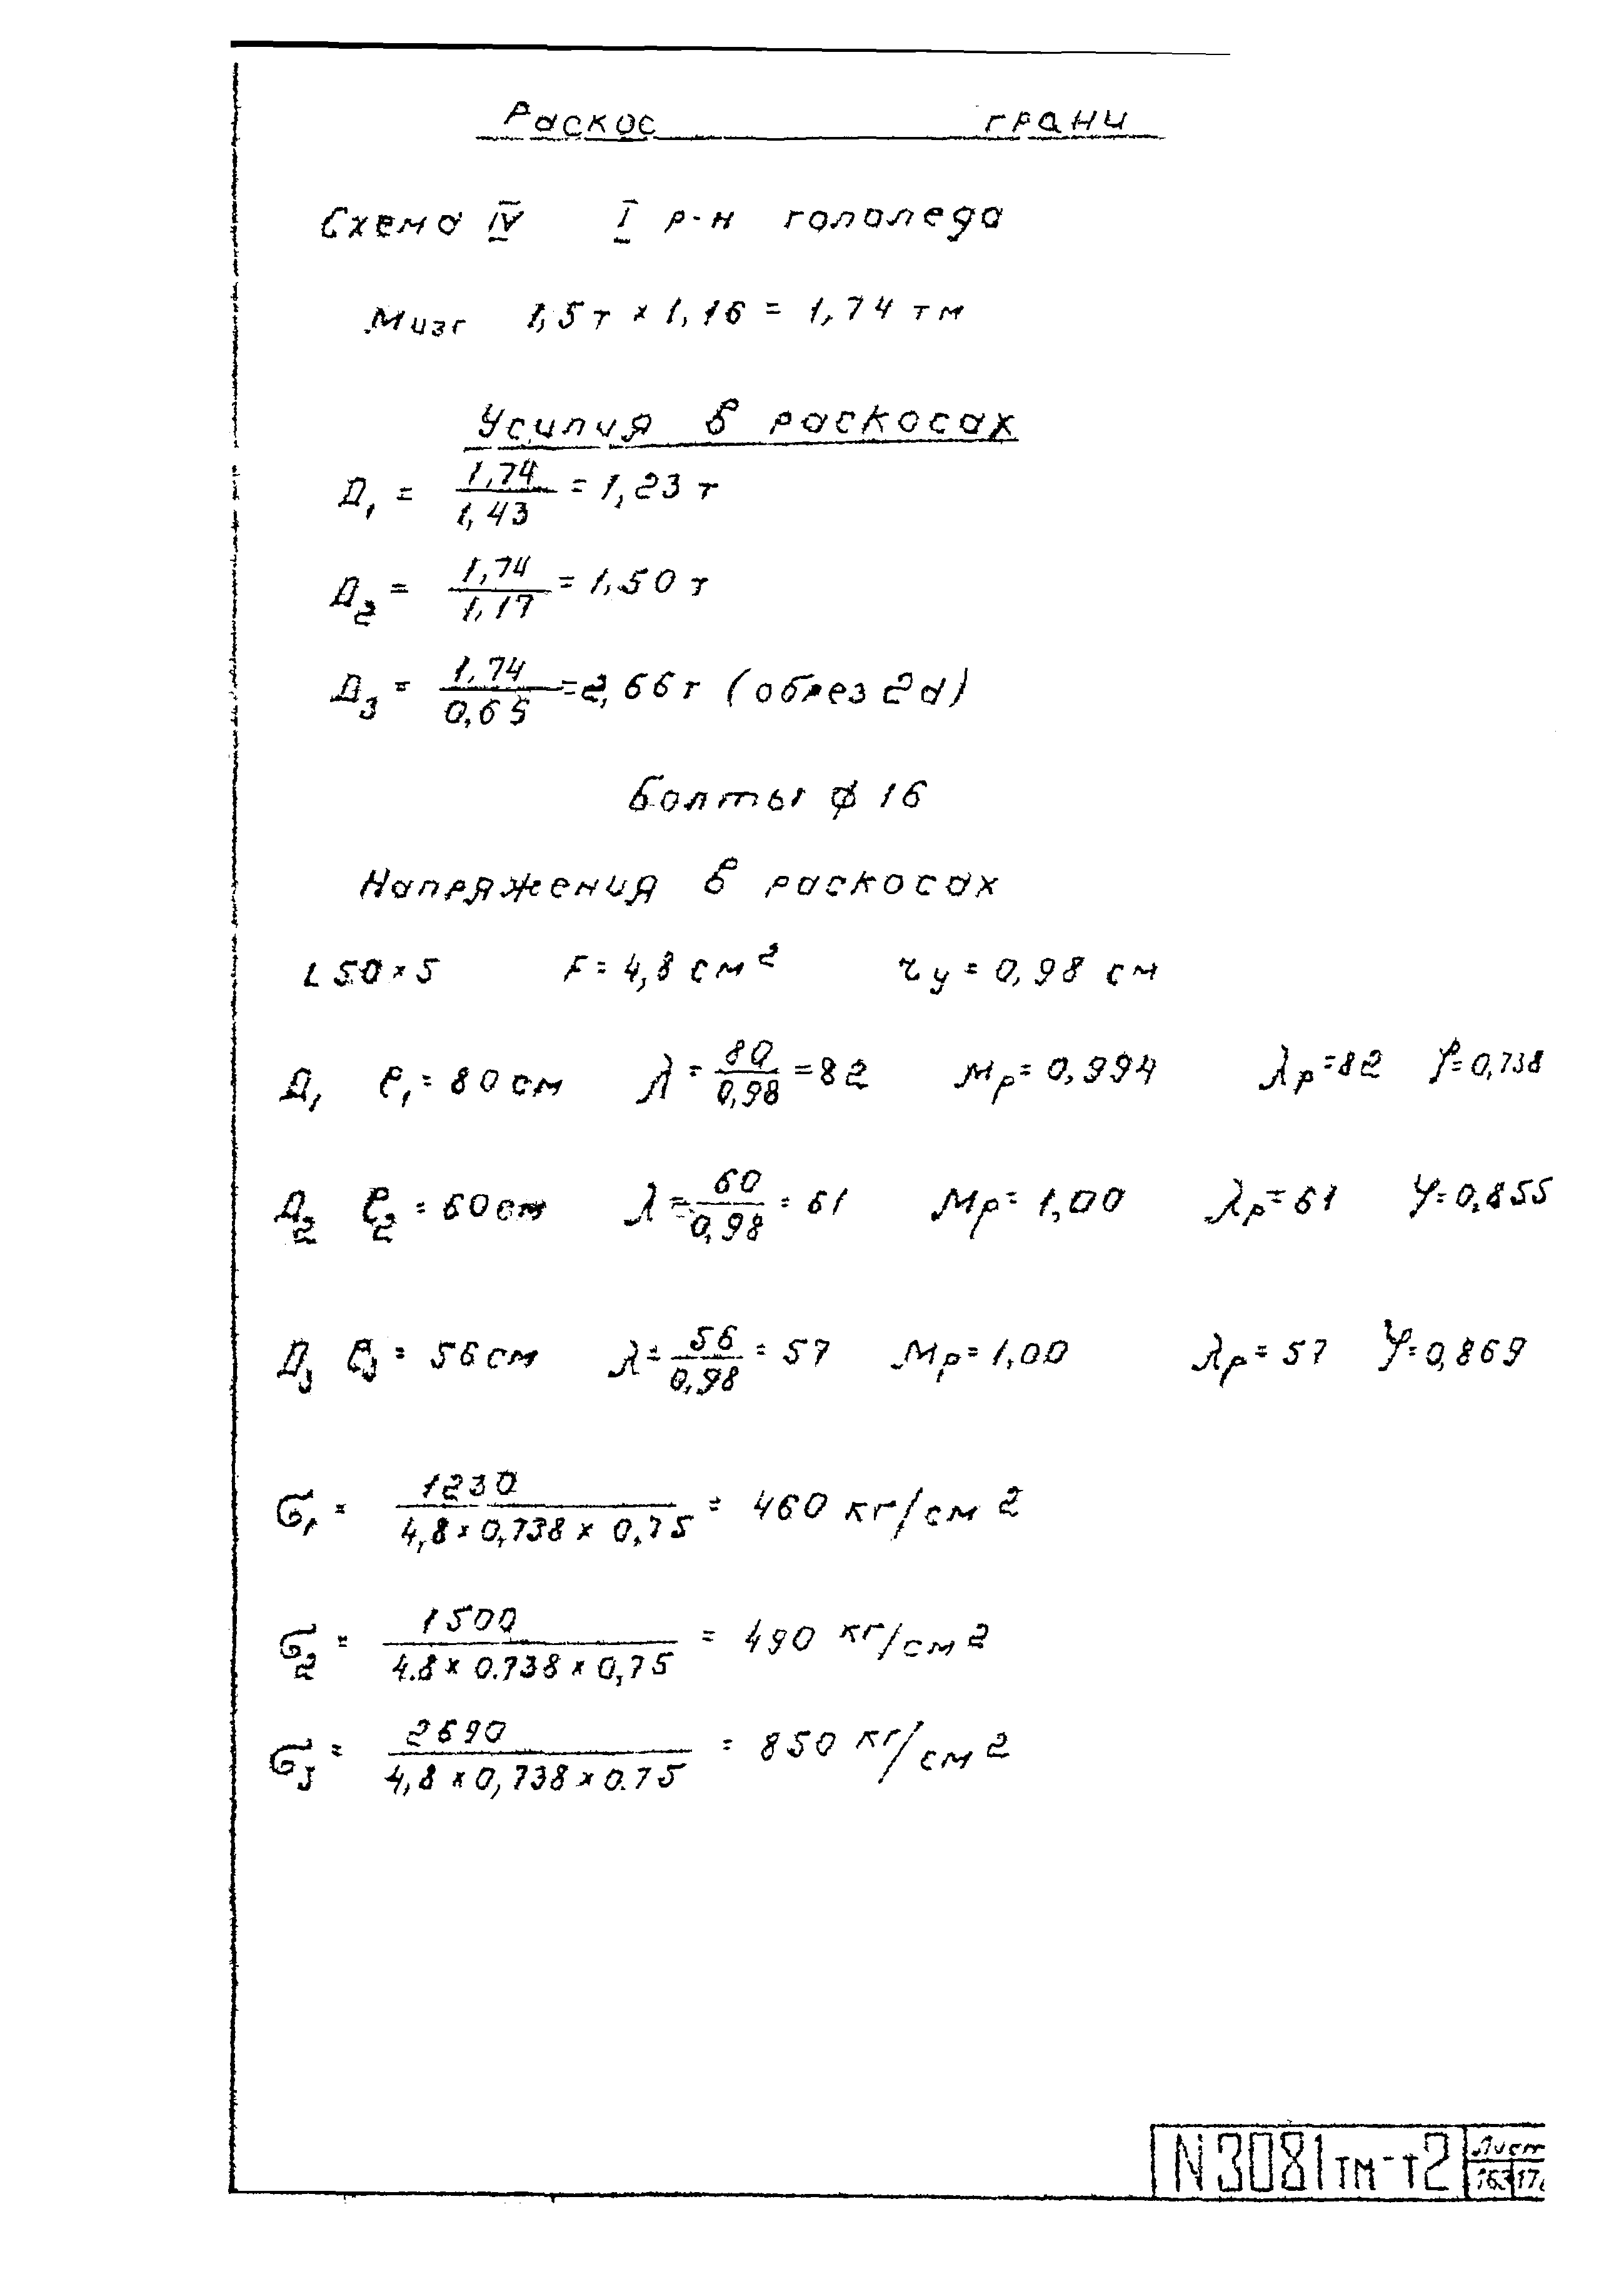 Раскос грани
Схема IV I р-н гололеда
Мизг 1,5т × 1,16 = 1,74 тм
Усилия в раскосах
Д₁ = 1,74 / 1,43 = 1,23 т
Д₂ = 1,74 / 1,17 = 1,50 т
Д₃ = 1,74 / 0,65 = 2,66 т (обрез 2d)
Болты ф 16
Напряжения в раскосах
L 50×5 F = 4,8 см² rу = 0,98 см
Д₁ ℓ₁ = 80 см λ = 80 / 0,98 = 82 Мр = 0,994 λр = 82 φ = 0,738
Д₂ ℓ₂ = 60 см λ = 60 / 0,98 = 61 Мр = 1,00 λр = 61 φ = 0,855
Д₃ ℓ₃ = 56 см λ = 56 / 0,98 = 57 Мр = 1,00 λр = 57 φ = 0,869
σ₁ = 1230 / 4,8 × 0,738 × 0,75 = 460 кг/см²
σ₂ = 1500 / 4.8 × 0.738 × 0,75 = 490 кг/см²
σ₃ = 2690 / 4,8 × 0,738 × 0.75 = 850 кг/см²
N3081тм-т2 Лист
163